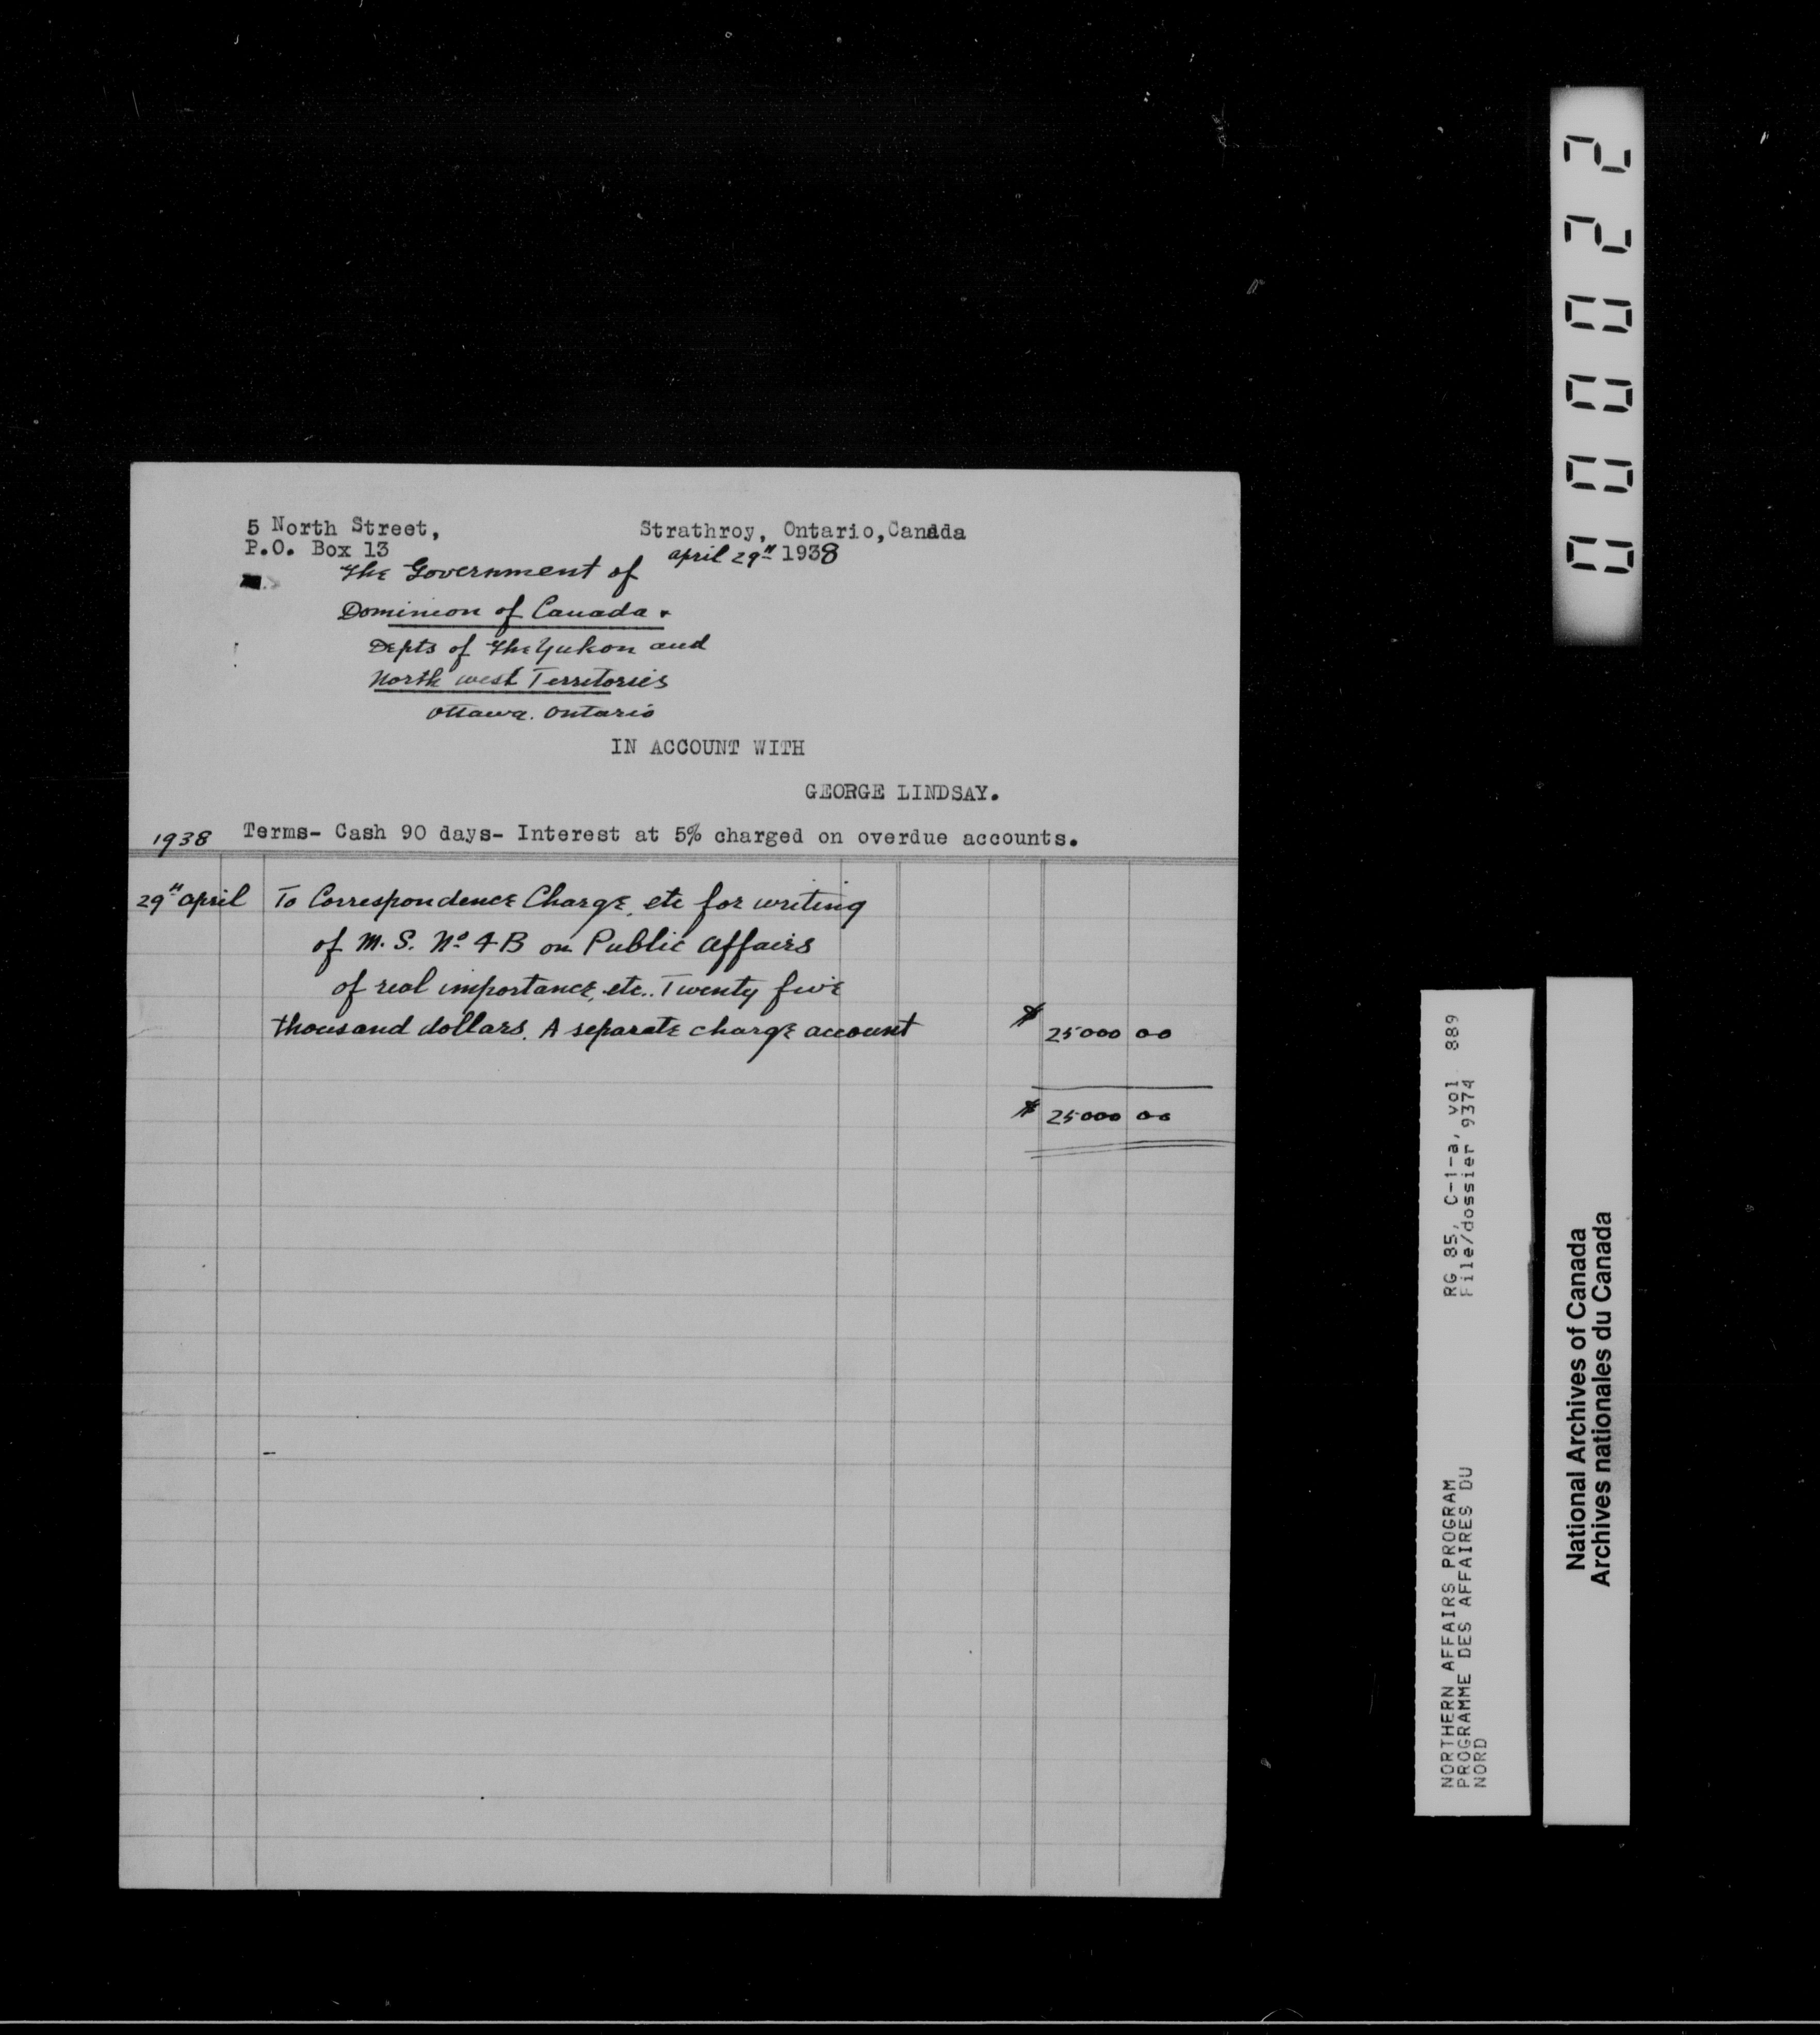 5 North Street,
Strathroy, Ontario, Canada
P.O. Box 13
april 29th 1938
The Government of
Dominion of Canada &
Depts of The Yukon and
North west Territories
Ottawa. Ontario
IN ACCOUNT WITH
GEORGE LINDSAY.
1938 Terms- Cash 90 days- Interest at 5% charged on overdue accounts.
29th april To Correspondence Charge, etc for writing
of M. S. No 4B on Public affairs
of real importance, etc.. Twenty five
thousand dollars. A separate charge account $ 25000 00
$ 25000 00
000022
RG 85, C-1-a, vol 889
File/dossier 9374
NORTHERN AFFAIRS PROGRAM
PROGRAMME DES AFFAIRES DU
NORD
National Archives of Canada
Archives nationales du Canada